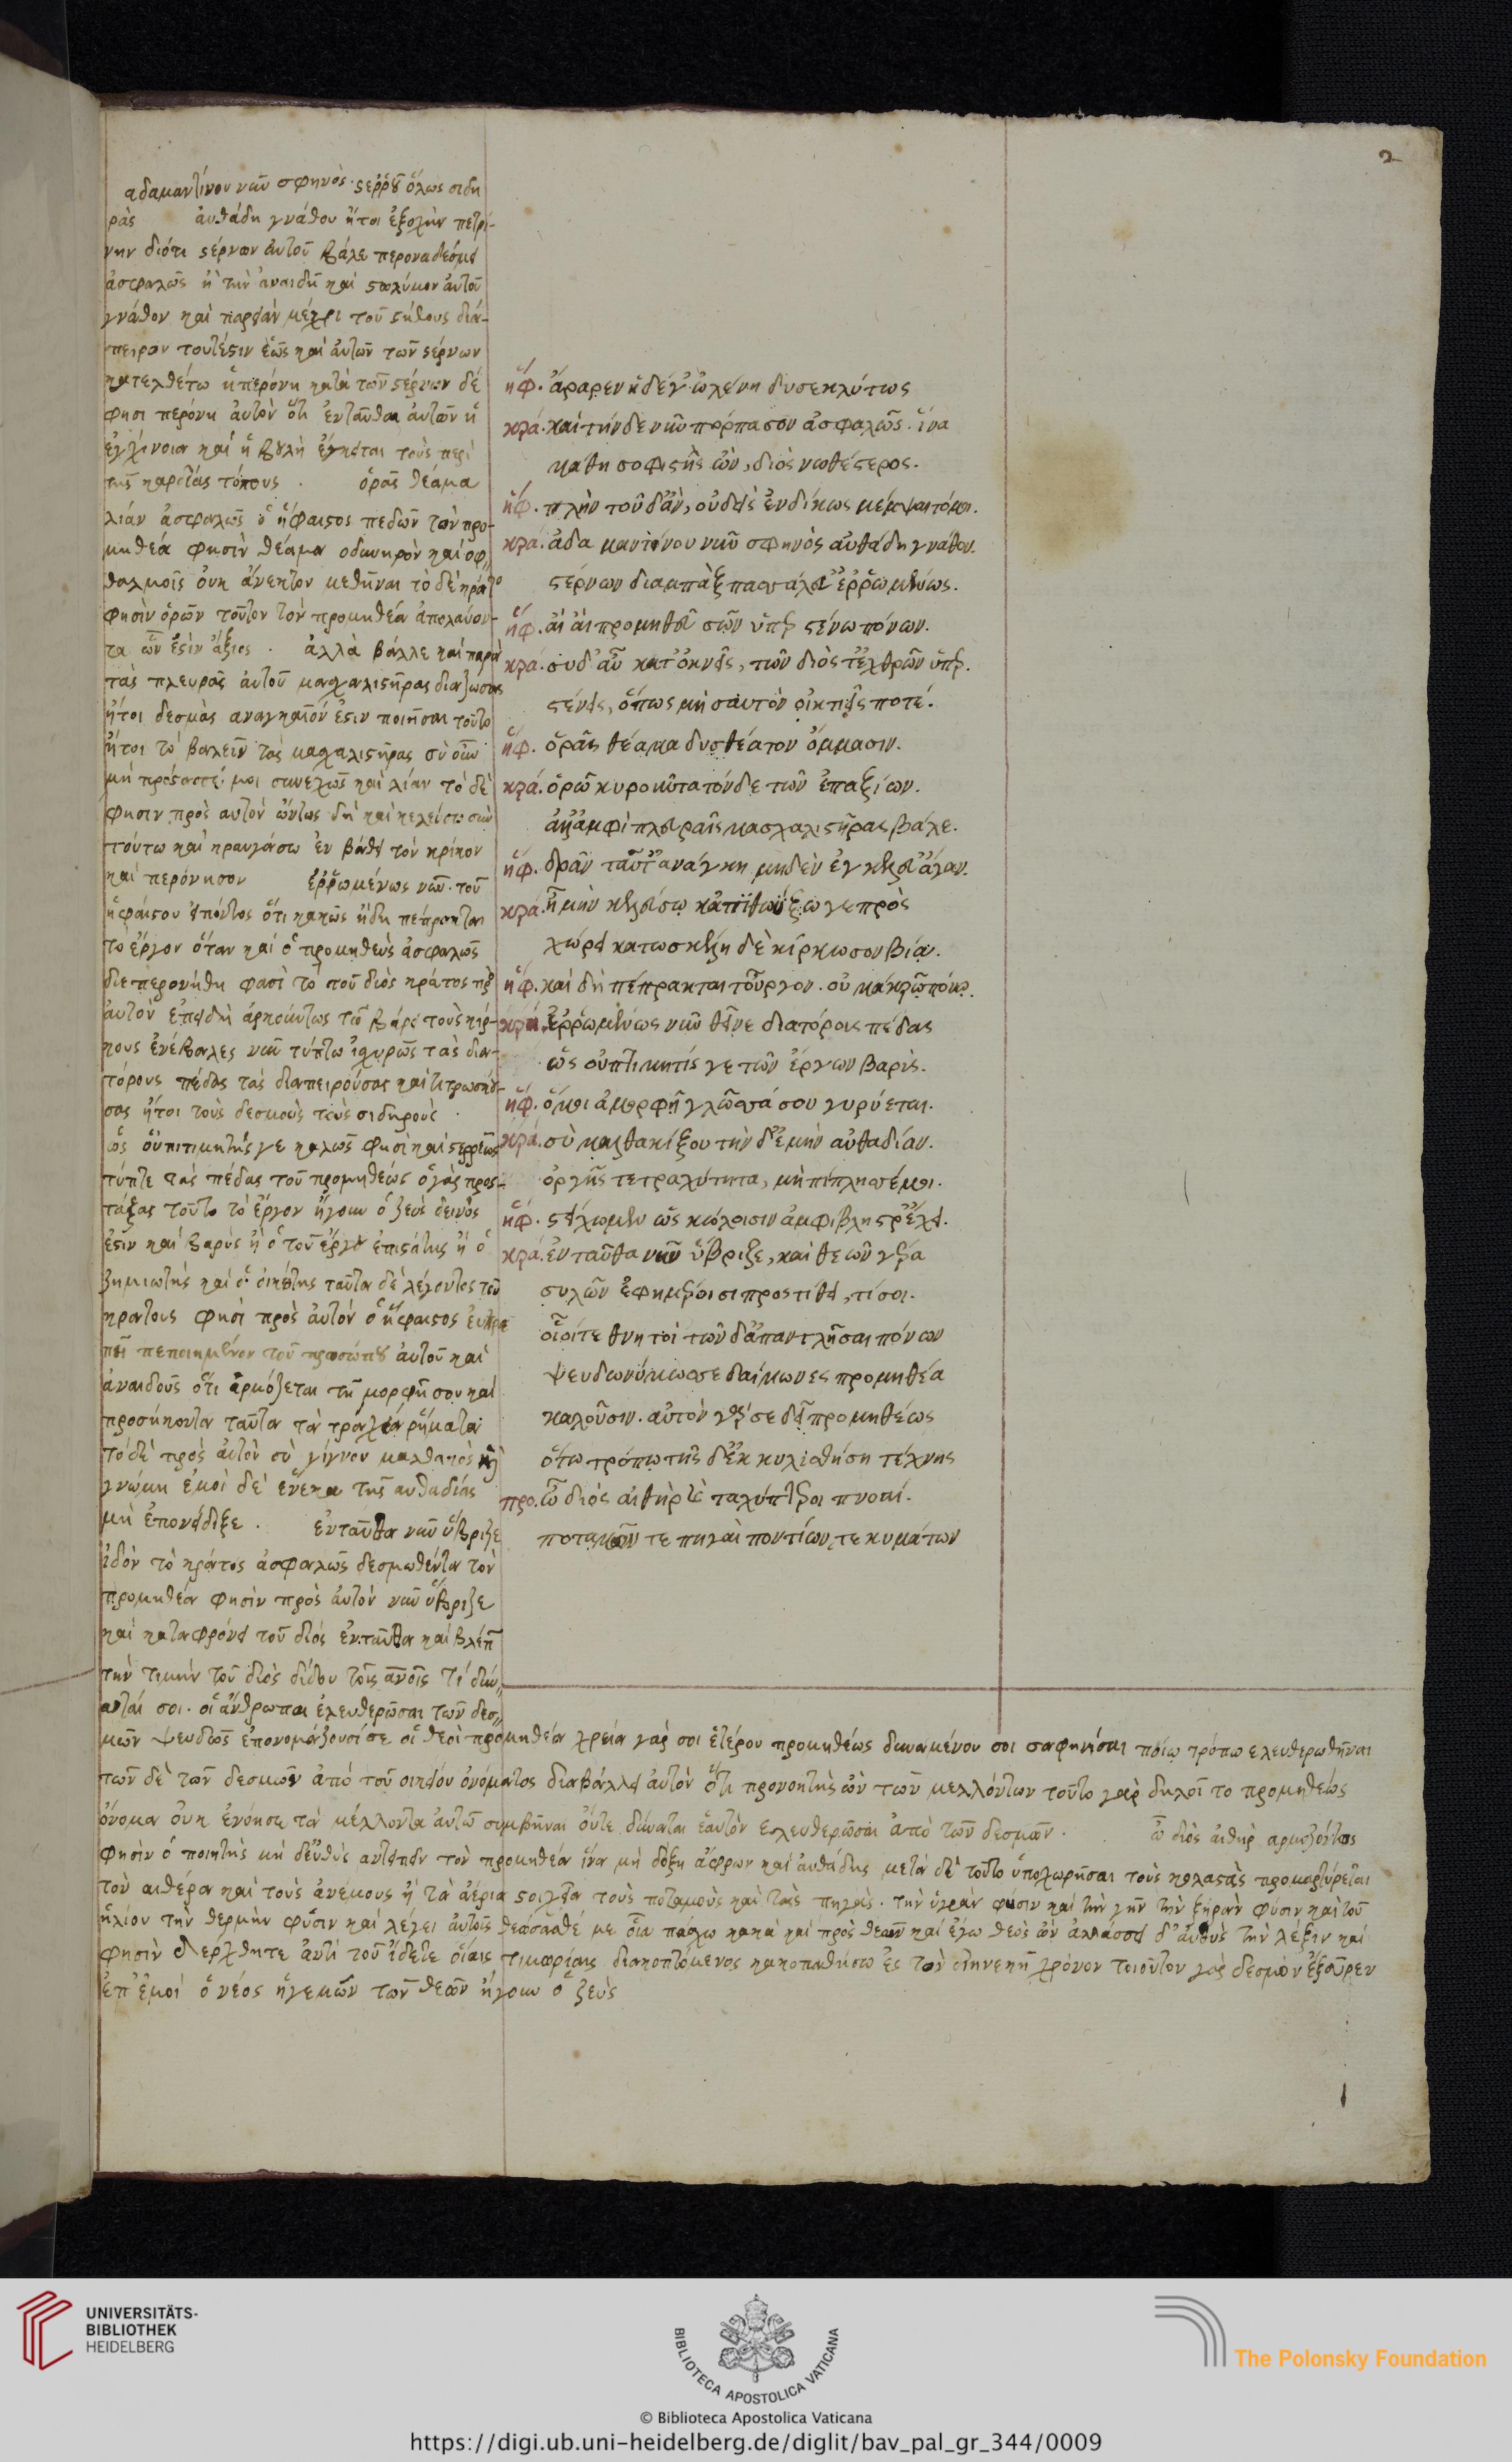 2
ἀδαμαντίνου νῦν σφηνὸς στερροῦ ὅλως σιδη
ρᾶς αὐθάδη γνάθον ἤτοι ἐξοχὴν πετρί-
νην διότι στέρνων αὐτοῦ
ἀσφαλῶς ἢ τὴν ἀναιδῆ καὶ αὐτοῦ
γνάθον καὶ παρειὰν μέχρι τοῦ στήθους διά-
πειρον τουτέστιν ἕως καὶ αὐτῶν τῶν στέρνων
κατελθέτω ἡ περόνη κατὰ τῶν στέρνων δέ
φησι περόνη αὐτὸν ὅτι ἐνταῦθα αὐτῶν ἡ
ἀγχίνοια καὶ ἡ βουλὴ τοὺς περὶ
τῆς καρδίας τόπους . ὁρᾷς θέαμα
λίαν ἀσφαλῶς ὁ ἥφαιστος πεδῶν τὸν προ-
μηθέα φησὶν θέαμα ὀδυνηρὸν καὶ ὀφ
θαλμοῖς οὐκ ἀνεκτὸν τὸ δὲ κράτο
φησὶν ὁρῶν τοῦτον τὸν προμηθέα ἀπολαύον-
τα ὧν ἐστὶν ἄξιος . ἀλλὰ βάλλε καὶ παρὰ
τὰς πλευρὰς αὐτοῦ μασχαλιστῆρας διαζώσας
ἤτοι δεσμὰς ἀναγκαῖόν ἐστιν ποιῆσαι τοῦτο
ἤτοι τὸ βαλεῖν τὰς μασχαλιστῆρας σὺ οὖν
μὴ πρόσταττέ μοι συνεχῶς καὶ λίαν τὸ δὲ
φησιν πρὸς αὐτὸν ὄντως δὴ καὶ κελεύσω σὺν
τούτω καὶ κραυγάσω ἐν βάθει τὸν κρίκον
καὶ περόνησον ἐρρωμένως νῦν. τοῦ
ἡφαίστου εἰπόντος ὅτι κακῶς ἤδη πέπρακται
τὸ ἔργον ὅταν καὶ ὁ προμηθεὺς ἀσφαλῶς
διεπερονήθη φασὶ τὸ τοῦ διὸς κράτος πρὸς
αὐτὸν ἐπειδὴ ἀρκούντως τοὺς κίρ-
κους ἐνέβαλες νῦν τύπτω ἰσχυρῶς τὰς δια-
τόρους πέδας τὰς διαπειρούσας καὶ τιτρωσκού-
σας ἤτοι τοὺς δεσμοὺς τοὺς σιδηροὺς .
ὡς οὑπιτιμητής γε καλῶς φησὶ καὶ στερρῶς
τύπτε τὰς πέδας τοῦ προμηθέως ὁ γὰρ προσ-
τάξας τοῦτο τὸ ἔργον ἤγουν ὁ ζεὺς δεινός
ἐστιν καὶ βαρὺς ἢ ὁ τοῦ ἔργου ἐπιστάτης ἢ ὁ
ζημιωτὴς καὶ ὁ ταῦτα δὲ λέγοντος τοῦ
κράτους φησὶ πρὸς αὐτὸν ὁ ἥφαιστος
πεποιημένον τοῦ προσώπου αὐτοῦ καὶ
ἀναιδοῦς ὅτι ἁρμόζεται τῇ μορφῇ σου καὶ
προσήκοντα ταῦτα τὰ τραχέα ῥήματα
τὸ δὲ πρὸς αὐτὸν σὺ γίγνου μαλθακὸς τῇ
γνώμη ἐμοὶ δὲ ἕνεκα τῆς αὐθαδίας
μὴ ἐπονείδιζε . ἐνταῦθα νῦν ὕβριζε
ἰδὸν τὸ κράτος ἀσφαλῶς δεσμωθέντα τὸν
προμηθέα φησὶν πρὸς αὐτὸν νῦν ὕβριζε
καὶ καταφρόνει τοῦ διός ἐνταῦθα καὶ
τὴν τιμὴν τοῦ διὸς δίδου τοῖς ἀνοις τί δύν
ανταί σοι. οἱ ἄνθρωποι ἐλευθερῶσαι τῶν δεσ
μῶν ψευδῶς ἐπονομάζουσί σε οἱ θεοὶ προμηθέα χρεία γάρ σοι ἑτέρου προμηθέως δυναμένου σοι σαφηνίσαι ποίω τρόπω ἐλευθερωθῆναι
τῶν δὲ τῶν δεσμῶν ἀπὸ τοῦ οἰκείου ὀνόματος διαβάλλει αὐτὸν ὅτι προνοητὴς ὢν τῶν μελλόντων τοῦτο γὰρ δηλοῖ το προμηθέως
ὄνομα οὐκ ἐνόησε τὰ μέλλοντα αὐτῶ συμβῆναι οὔτε δύναται ἑαυτὸν ἐλευθερῶσαι ἀπὸ τῶν δεσμῶν . ὦ διὸς αἰθὴρ ἁρμοζόντως
φησὶν ὁ ποιητὴς μὴ δ' εὐθὺς ἀντειπεῖν τὸν προμηθέα ἵνα μὴ δόξη ἄφρων καὶ αὐθάδης μετὰ δὲ τοῦτο ὑποχωρῆσαι τοὺς κολαστὰς προμαρτύρεται
τὸν αἰθέρα καὶ τοὺς ἀνέμους ἢ τὰ ἀέρια στοιχεῖα τοὺς ποταμοὺς καὶ τὰς πηγάς . τὴν ὑγρὰν φύσιν καὶ τὴν γῆν τὴν ξηρὰν φύσιν καὶ τοῦ
ἡλίου τὴν θερμὴν φύσιν καὶ λέγει αὐτοῖς θεάσασθέ με οἷα πάσχω κακὰ καὶ πρὸς θεῶν καὶ ἐγὼ θεὸς ὢν ἀλλάσσει δ' αὖθις τὴν λέξιν καὶ
φησὶν δέρχθητε ἀντὶ τοῦ ἴδετε οἵαις τιμωρίαις διακοπτόμενος κακοπαθήσω ἐς τὸν διηνεκῆ χρόνον τοιοῦτον γὰρ δεσμὸν ἐξεῦρεν
ἐπ' ἐμοὶ ὁ νέος ἡγεμὼν τῶν θεῶν ἤγουν ὁ ζεὺς
ἥφ. ἄραρεν ἥδέγ' ὠλένη δυσεκλύτως
κρά. καὶ τήνδε νῦν πόρπασον ἀσφαλῶς. ἵνα
μάθη σοφιστὴς ὤν, διὸς νωθέστερος.
ἥφ. πλὴν τοῦδ' ἂν, οὐδεὶς ἐνδίκως μέμψαιτό μοι.
κρά. ἀδαμαντίνου νῦν σφηνὸς αὐθάδη γνάθον.
στέρνων διαμπὰξ πασσάλευ' ἐρρωμένως.
ἥφ. αἲ αἲ προμηθεῦ σῶν ὕπερ στένω πόνων.
κρά. συδ' αὖ κατοκνεῖς, τῶν διός τ' ἐχθρῶν ὕπερ.
στένεις, ὅπως μὴ σαυτὸν οἰκτιεῖς ποτέ.
ἥφ. ὁρᾷς θέαμα δυσθέατον ὄμμασιν.
κρά. ὁρῶ κυροῦντα τόνδε τῶν ἐπαξίων.
ἀλλ' ἀμφὶ πλευραῖς μασχαλιστῆρας βάλε.
ἥφ. δρᾶν ταῦτ' ἀνάγκη μηδὲν ἐγκέλευ' ἄγαν.
κρά. ἦ μὴν κελεύσω κἀπιθωΰξω γε πρὸς
χώρει κάτω σκέλη δὲ κίρκωσον βίᾳ.
ἥφ. καὶ δὴ πέπρακται τοὖργον. οὐ μακρῷ πόνῳ.
κρά. ἐρρωμένως νῦν θεῖνε διατόρους πέδας
ὡς οὑπιτιμητής γε τῶν ἔργων βαρὺς.
ἥφ. ὅμοια μορφῇ γλῶσσά σου γηρύεται.
κρά. σὺ μαλθακίζου τὴν δ' ἐμὴν αὐθαδίαν.
ὀργῆς τε τραχύτητα, μὴ 'πίπλησσέ μοι.
ἥφ. στείχωμεν ὡς κώλοισιν ἀμφίβληστρ' ἔχει.
κρά. ἐνταῦθα νῦν ὕβριζε, καὶ θεῶν γέρα
συλῶν ἐφημέροισι προστίθει, τί σοι.
οἷοίτε θνητοὶ τῶνδ' ἀπαντλῆσαι πόνων
ψευδωνύμως σε δαίμονες προμηθέα
καλοῦσιν. αὐτὸν γάρ σε δεῖ προμηθέως
ὅτω τρόπω τῆς δ' ἐκκυλισθήση τέχνης
προ. ὦ διὸς αἰθὴρ καὶ ταχύπτεροι πνοαί.
ποταμῶν τε πηγαὶ ποντίων, τε κυμάτων
UNIVERSITÄTS-
BIBLIOTHEK
HEIDELBERG
BIBLIOTECA APOSTOLICA VATICANA
© Biblioteca Apostolica Vaticana
The Polonsky Foundation
https://digi.ub.uni-heidelberg.de/diglit/bav_pal_gr_344/0009